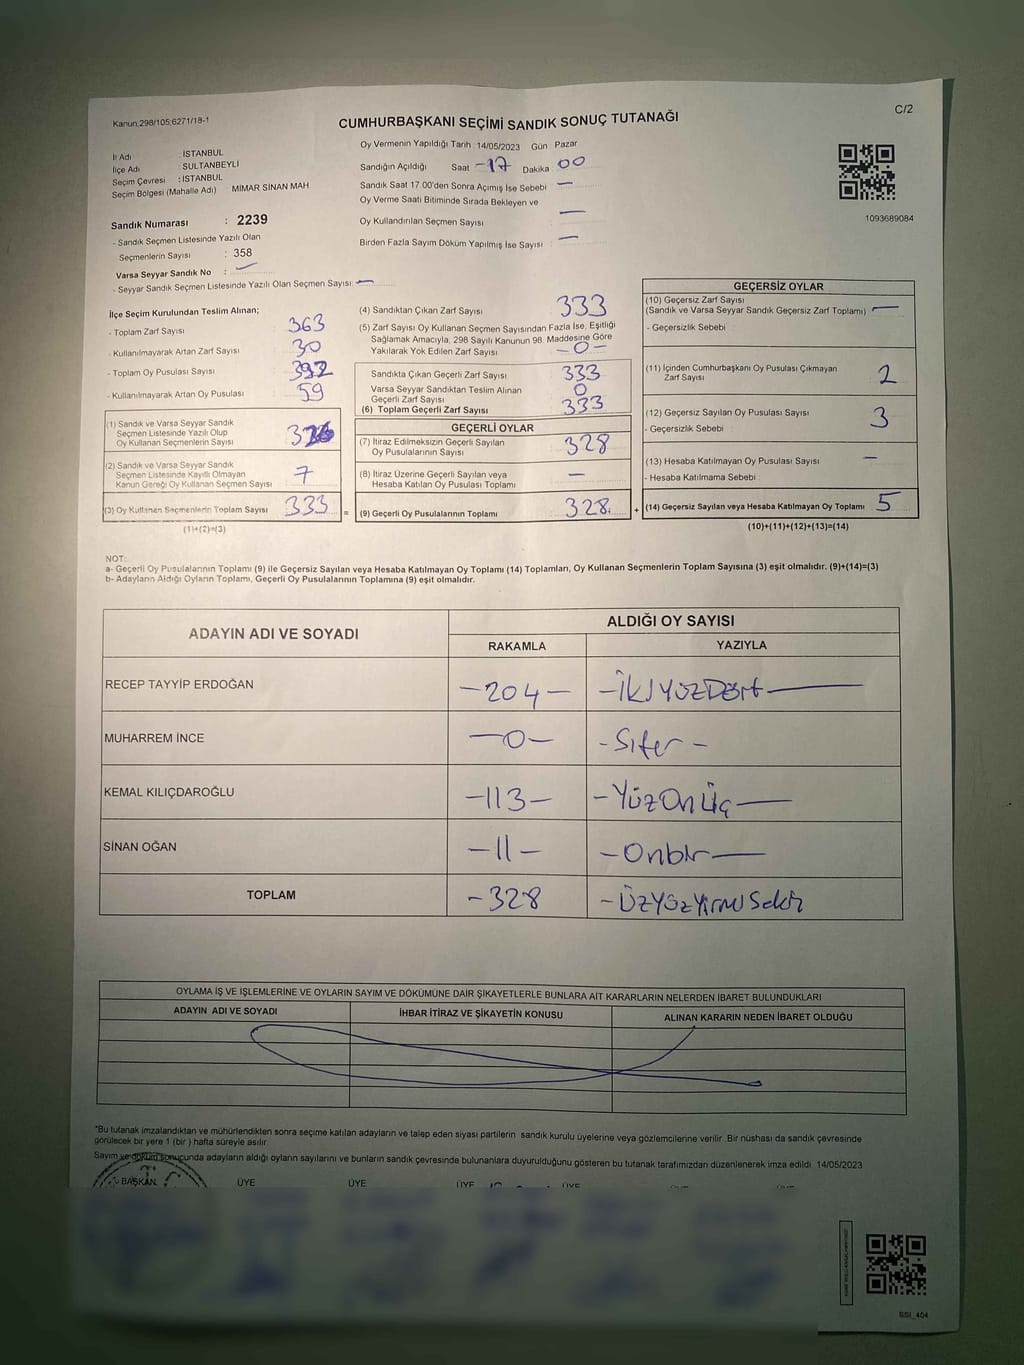 Kanun;298/105;6271/18-1
C/2
CUMHURBAŞKANI SEÇİMİ SANDIK SONUÇ TUTANAĞI
İl Adı : İSTANBUL
İlçe Adı : SULTANBEYLİ
Seçim Çevresi : İSTANBUL
Seçim Bölgesi (Mahalle Adı) : MİMAR SİNAN MAH
Sandık Numarası : 2239
- Sandık Seçmen Listesinde Yazılı Olan
Seçmenlerin Sayısı : 358
Varsa Seyyar Sandık No : —
- Seyyar Sandık Seçmen Listesinde Yazılı Olan Seçmen Sayısı: —
Oy Vermenin Yapıldığı Tarih : 14/05/2023 Gün : Pazar
Sandığın Açıldığı Saat -17 Dakika 00
Sandık Saat 17.00'den Sonra Açımış İse Sebebi —
Oy Verme Saati Bitiminde Sırada Bekleyen ve
Oy Kullandırılan Seçmen Sayısı —
Birden Fazla Sayım Döküm Yapılmış İse Sayısı : —
1093689084
İlçe Seçim Kurulundan Teslim Alınan;
- Toplam Zarf Sayısı 363
- Kullanılmayarak Artan Zarf Sayısı 30
- Toplam Oy Pusulası Sayısı 392
- Kullanılmayarak Artan Oy Pusulası 59
(1) Sandık ve Varsa Seyyar Sandık
Seçmen Listesinde Yazılı Olup
Oy Kullanan Seçmenlerin Sayısı 326
(2) Sandık ve Varsa Seyyar Sandık
Seçmen Listesinde Kayıtlı Olmayan
Kanun Gereği Oy Kullanan Seçmen Sayısı 7
(3) Oy Kullanan Seçmenlerin Toplam Sayısı 333 =
(1)+(2)=(3)
(4) Sandıktan Çıkan Zarf Sayısı 333
(5) Zarf Sayısı Oy Kullanan Seçmen Sayısından Fazla İse, Eşitliği
Sağlamak Amacıyla, 298 Sayılı Kanunun 98. Maddesine Göre
Yakılarak Yok Edilen Zarf Sayısı -0-
Sandıkta Çıkan Geçerli Zarf Sayısı 333
Varsa Seyyar Sandıktan Teslim Alınan
Geçerli Zarf Sayısı 0
(6) Toplam Geçerli Zarf Sayısı 333
GEÇERLİ OYLAR
(7) İtiraz Edilmeksizin Geçerli Sayılan
Oy Pusulalarının Sayısı 328
(8) İtiraz Üzerine Geçerli Sayılan veya
Hesaba Katılan Oy Pusulası Toplamı —
(9) Geçerli Oy Pusulalarının Toplamı 328 +
GEÇERSİZ OYLAR
(10) Geçersiz Zarf Sayısı
(Sandık ve Varsa Seyyar Sandık Geçersiz Zarf Toplamı) —
- Geçersizlik Sebebi
(11) İçinden Cumhurbaşkanı Oy Pusulası Çıkmayan
Zarf Sayısı 2
(12) Geçersiz Sayılan Oy Pusulası Sayısı 3
- Geçersizlik Sebebi
(13) Hesaba Katılmayan Oy Pusulası Sayısı —
- Hesaba Katılmama Sebebi
(14) Geçersiz Sayılan veya Hesaba Katılmayan Oy Toplamı 5
(10)+(11)+(12)+(13)=(14)
NOT:
a- Geçerli Oy Pusulalarının Toplamı (9) ile Geçersiz Sayılan veya Hesaba Katılmayan Oy Toplamı (14) Toplamları, Oy Kullanan Seçmenlerin Toplam Sayısına (3) eşit olmalıdır. (9)+(14)=(3)
b- Adayların Aldığı Oyların Toplamı, Geçerli Oy Pusulalarının Toplamına (9) eşit olmalıdır.
ADAYIN ADI VE SOYADI ALDIĞI OY SAYISI
RAKAMLA YAZIYLA
RECEP TAYYİP ERDOĞAN -204- -İKİYÜZDört-
MUHARREM İNCE -0- -Sıfer-
KEMAL KILIÇDAROĞLU -113- -YüzOnÜç-
SİNAN OĞAN -11- -Onbir-
TOPLAM -328 -ÜZYÜZYİRMİSekiz
OYLAMA İŞ VE İŞLEMLERİNE VE OYLARIN SAYIM VE DÖKÜMÜNE DAİR ŞİKAYETLERLE BUNLARA AİT KARARLARIN NELERDEN İBARET BULUNDUKLARI
ADAYIN ADI VE SOYADI İHBAR İTİRAZ VE ŞİKAYETİN KONUSU ALINAN KARARIN NEDEN İBARET OLDUĞU
"Bu tutanak imzalandıktan ve mühürlendikten sonra seçime katılan adayların ve talep eden siyasi partilerin sandık kurulu üyelerine veya gözlemcilerine verilir. Bir nüshası da sandık çevresinde
görülecek bir yere 1 (bir) hafta süreyle asılır.
Sayım ve döküm sonucunda adayların aldığı oyların sayılarını ve bunların sandık çevresinde bulunanlara duyurulduğunu gösteren bu tutanak tarafımızdan düzenlenerek imza edildi 14/05/2023
BAŞKAN ÜYE ÜYE ÜYE ÜYE
SSI_404